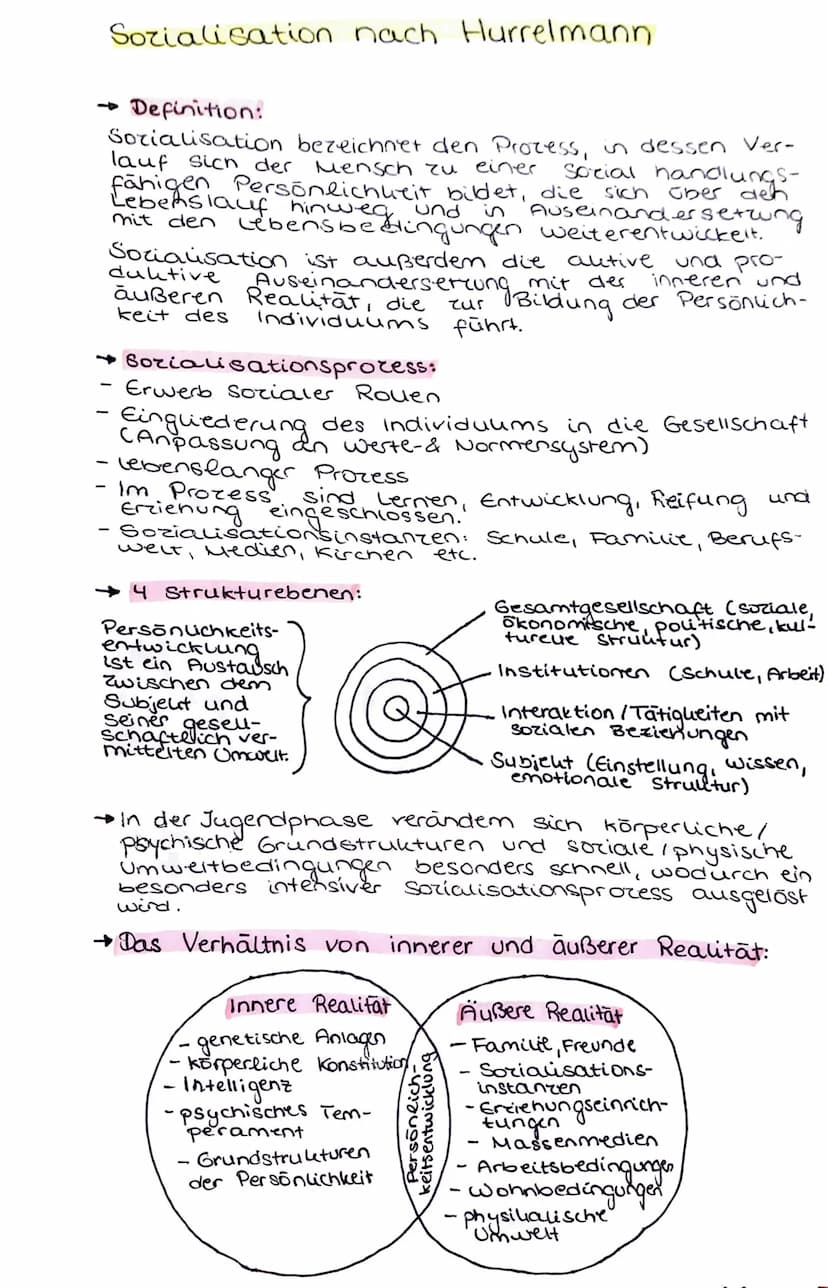 Sozialisation nach Hurrelmann
→ Definition:
Sozialisation bezeichnet den Prozess, in dessen Ver-
lauf sich der Mensch zu einer sozial handlungs-
fähigen Persönlichkeit bildet, die sich über den
Lebenslauf hinweg und in Auseinandersetzung
mit den Lebensbedingungen weiterentwickelt.
Sozialisation ist außerdem die aktive und pro-
duktive Auseinandersetzung mit der inneren und
äußeren Realität, die zur Bildung der Persönlich-
keit des Individuums führt.
→ Sozialisationsprozess:
- Erwerb sozialer Rollen
- Eingliederung des Individuums in die Gesellschaft
(Anpassung an Werte-& Normensystem)
- lebenslanger Prozess
- Im Prozess sind Lernen, Entwicklung, Reifung und
Erziehung eingeschlossen.
- Sozialisationsinstanzen: Schule, Familie, Berufs-
welt, Medien, Kirchen etc.
→ 4 Strukturebenen:
Persönlichkeits-
entwicklung
ist ein Austausch
zwischen dem
Subjekt und
seiner gesell-
schaftlich ver-
mittelten Umwelt.
Gesamtgesellschaft (soziale,
ökonomische, politische, kul-
turelle Struktur)
Institutionen (Schule, Arbeit)
Interaktion/Tätigkeiten mit
sozialen Beziehungen
Subjekt (Einstellung, Wissen,
emotionale Struktur)
→ In der Jugendphase verändern sich körperliche/
psychische Grundstrukturen und soziale/physische
Umweltbedingungen besonders schnell, wodurch ein
besonders intensiver Sozialisationsprozess ausgelöst
wird.
→ Das Verhältnis von innerer und äußerer Realität:
Innere Realität
- genetische Anlagen
- körperliche Konstitution
- Intelligenz
- psychisches Tem-
perament
- Grundstrukturen
der Persönlichkeit
Persönlich-
keitsentwicklung
Äußere Realität
- Familie, Freunde
- Sozialisations-
instanzen
- Erziehungseinrich-
tungen
- Massenmedien
- Arbeitsbedingungen
- Wohnbedingungen
- physikalische
Umwelt